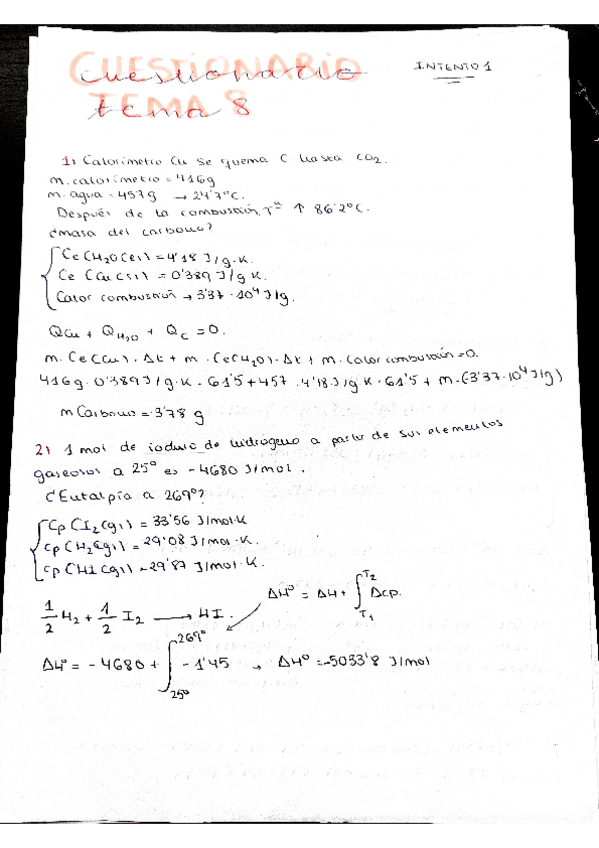 CUESTIONARIO
TEMA 8
INTENTO 1
1) Calorímetro Cu se quema C hasta CO2.
m. calorímetro = 416g
m. agua = 457g → 24'7ºC.
Después de la combustión, Tª ↑ 86'2ºC.
¿masa del carbono?
Ce(H2O(l)) = 4'18 J/g·K.
Ce (Cu(s)) = 0'389 J/g·K.
Calor combustión → 3'37·10⁴ J/g.
QCu + QH2O + QC = 0.
m. Ce(Cu). Δt + m. Ce(H2O). Δt + m. Calor combustión = 0.
416g. 0'389 J/g·K. 61'5 + 457. 4'18 J/g·K. 61'5 + m. (-3'37·10⁴ J/g)
m Carbono = 3'78 g
2) 1 mol de ioduro de hidrógeno a partir de sus elementos
gaseosos a 25º es -4680 J/mol.
¿Entalpía a 269º?
Cp (I2(g)) = 33'56 J/mol·K
Cp (H2(g)) = 29'08 J/mol·K.
Cp (HI(g)) = 29'87 J/mol·K.
ΔHº = ΔH + ∫T1 T2 Δcp.
1/2 H2 + 1/2 I2 → HI.
ΔHº = -4680 + ∫25º 269º -1'45 → ΔHº = -5033'8 J/mol